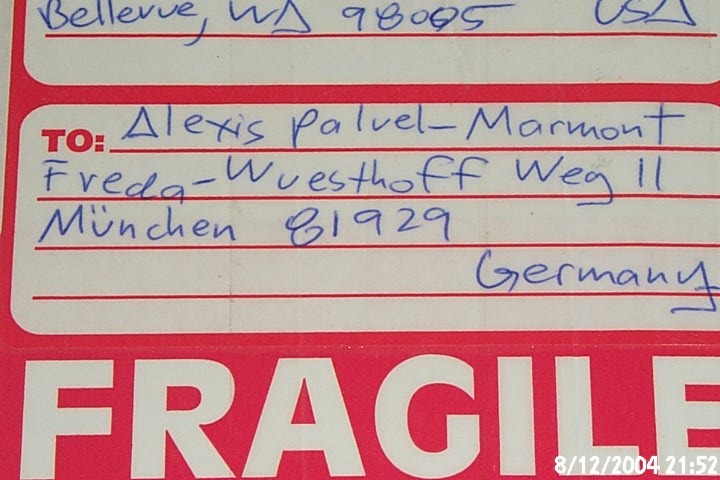 Bellevue, WA 98005 USA
TO: Alexis Palvel-Marmont
Freda-Wuesthoff Weg 11
München 81929
Germany
FRAGILE
8/12/2004 21:52